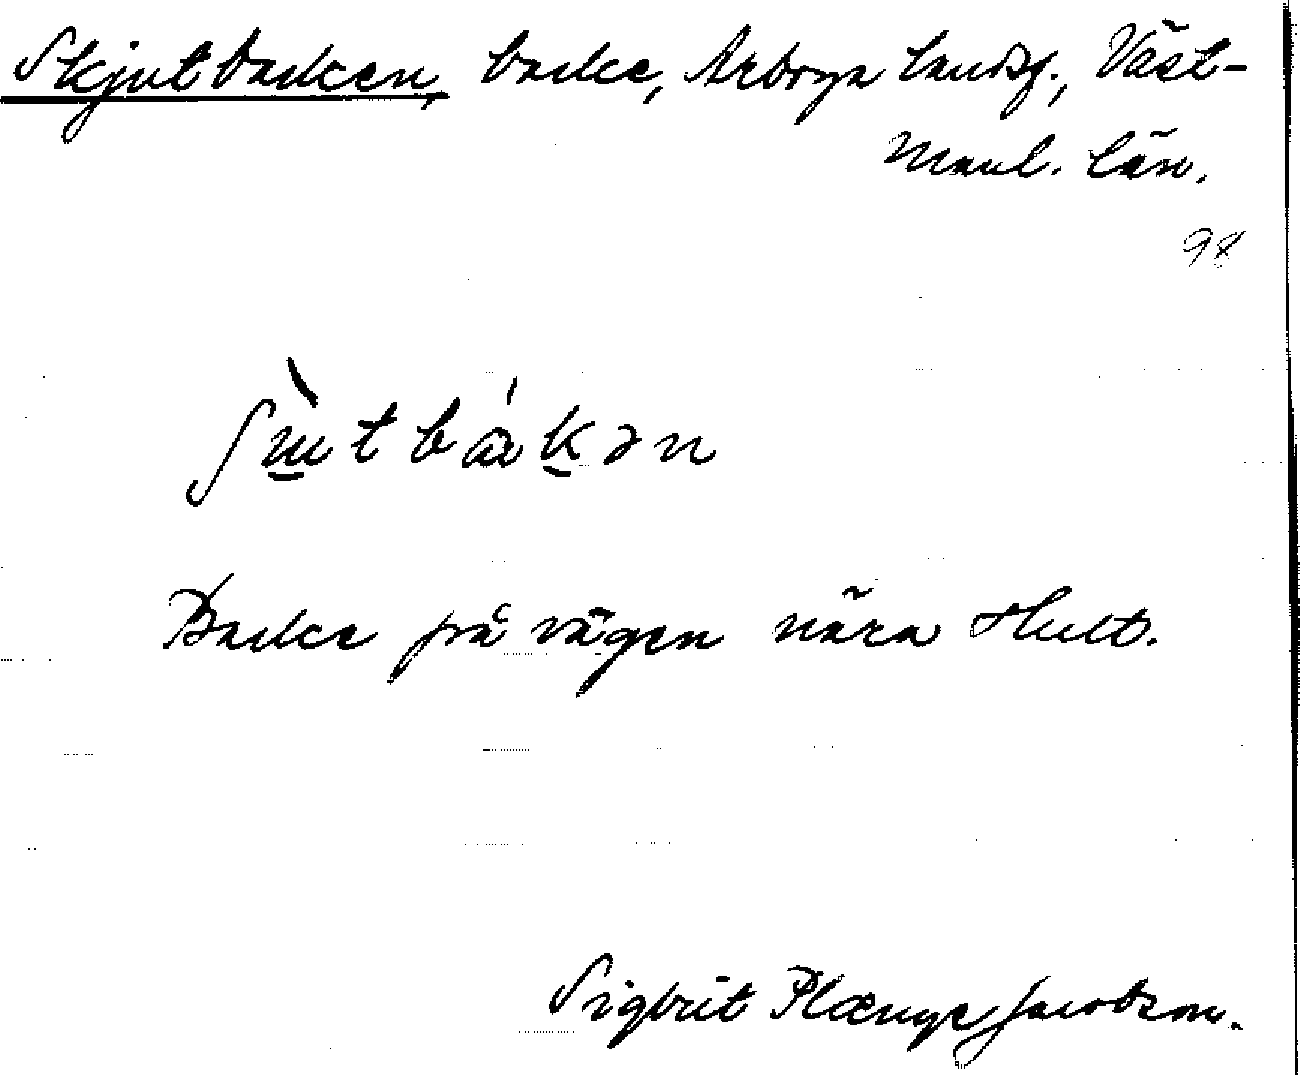 Skjutbacken, backe, Arboga landsf., Väst-
manl. län.
98
ʃɯ̀tbákən
Backe på vägen nära Hult.
Sigbrit Plænge Jacobson.